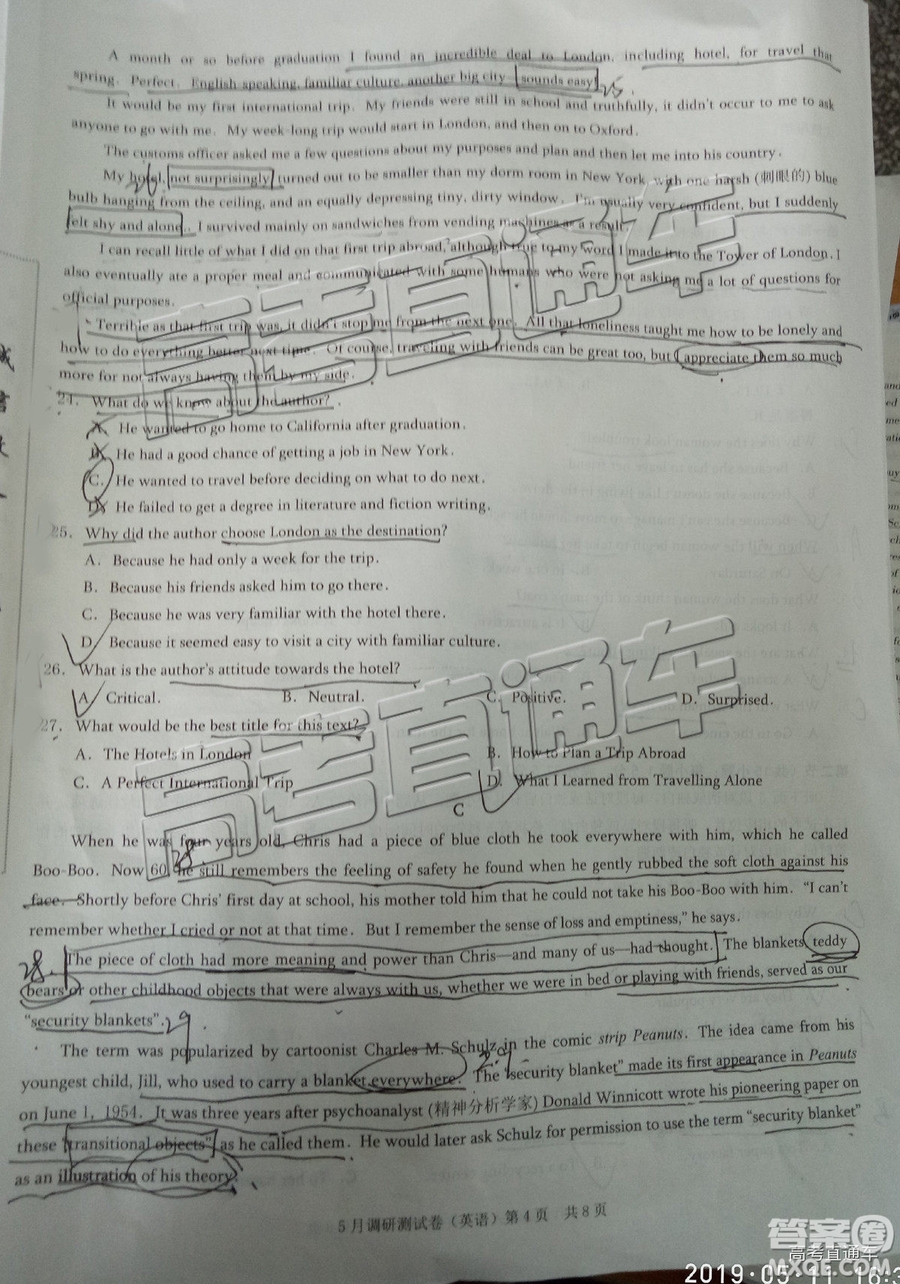 A month or so before graduation I found an incredible deal to London, including hotel, for travel that
spring. Perfect. English speaking, familiar culture, another big city sounds easy. 25.
It would be my first international trip. My friends were still in school and truthfully, it didn't occur to me to ask
anyone to go with me. My week-long trip would start in London, and then on to Oxford.
The customs officer asked me a few questions about my purposes and plan and then let me into his country.
My hotel, not surprisingly, turned out to be smaller than my dorm room in New York, with one harsh (刺眼的) blue
26
bulb hanging from the ceiling, and an equally depressing tiny, dirty window. I'm usually very confident, but I suddenly
felt shy and alone. I survived mainly on sandwiches from vending machines as a result.
I can recall little of what I did on that first trip abroad, although true to my word I made it to the Tower of London. I
also eventually ate a proper meal and communicated with some humans who were not asking me a lot of questions for
official purposes.
Terrible as that first trip was, it didn't stop me from the next one. All that loneliness taught me how to be lonely and
how to do everything better next time. Of course, traveling with friends can be great too, but I appreciate them so much
more for not always having them by my side.
24. What do we know about the author?
A. He wanted to go home to California after graduation.
B. He had a good chance of getting a job in New York.
C. He wanted to travel before deciding on what to do next.
D. He failed to get a degree in literature and fiction writing.
25. Why did the author choose London as the destination?
A. Because he had only a week for the trip.
B. Because his friends asked him to go there.
C. Because he was very familiar with the hotel there.
D. Because it seemed easy to visit a city with familiar culture.
26. What is the author's attitude towards the hotel?
A. Critical. B. Neutral. C. Positive. D. Surprised.
27. What would be the best title for this text?
A. The Hotels in London B. How to Plan a Trip Abroad
C. A Perfect International Trip D. What I Learned from Travelling Alone
C
When he was four years old, Chris had a piece of blue cloth he took everywhere with him, which he called
28
Boo-Boo. Now 60, he still remembers the feeling of safety he found when he gently rubbed the soft cloth against his
face. Shortly before Chris' first day at school, his mother told him that he could not take his Boo-Boo with him. "I can't
remember whether I cried or not at that time. But I remember the sense of loss and emptiness," he says.
28. The piece of cloth had more meaning and power than Chris—and many of us—had thought. The blankets, teddy
bears or other childhood objects that were always with us, whether we were in bed or playing with friends, served as our
"security blankets". 29
The term was popularized by cartoonist Charles M. Schulz in the comic strip Peanuts. The idea came from his
29
youngest child, Jill, who used to carry a blanket everywhere. The "security blanket" made its first appearance in Peanuts
on June 1, 1954. It was three years after psychoanalyst (精神分析学家) Donald Winnicott wrote his pioneering paper on
these "transitional objects", as he called them. He would later ask Schulz for permission to use the term "security blanket"
as an illustration of his theory.
5月调研测试卷(英语)第4页 共8页
高考直通车
高考直通车
答案圈
高考直通车
MXQE.COM